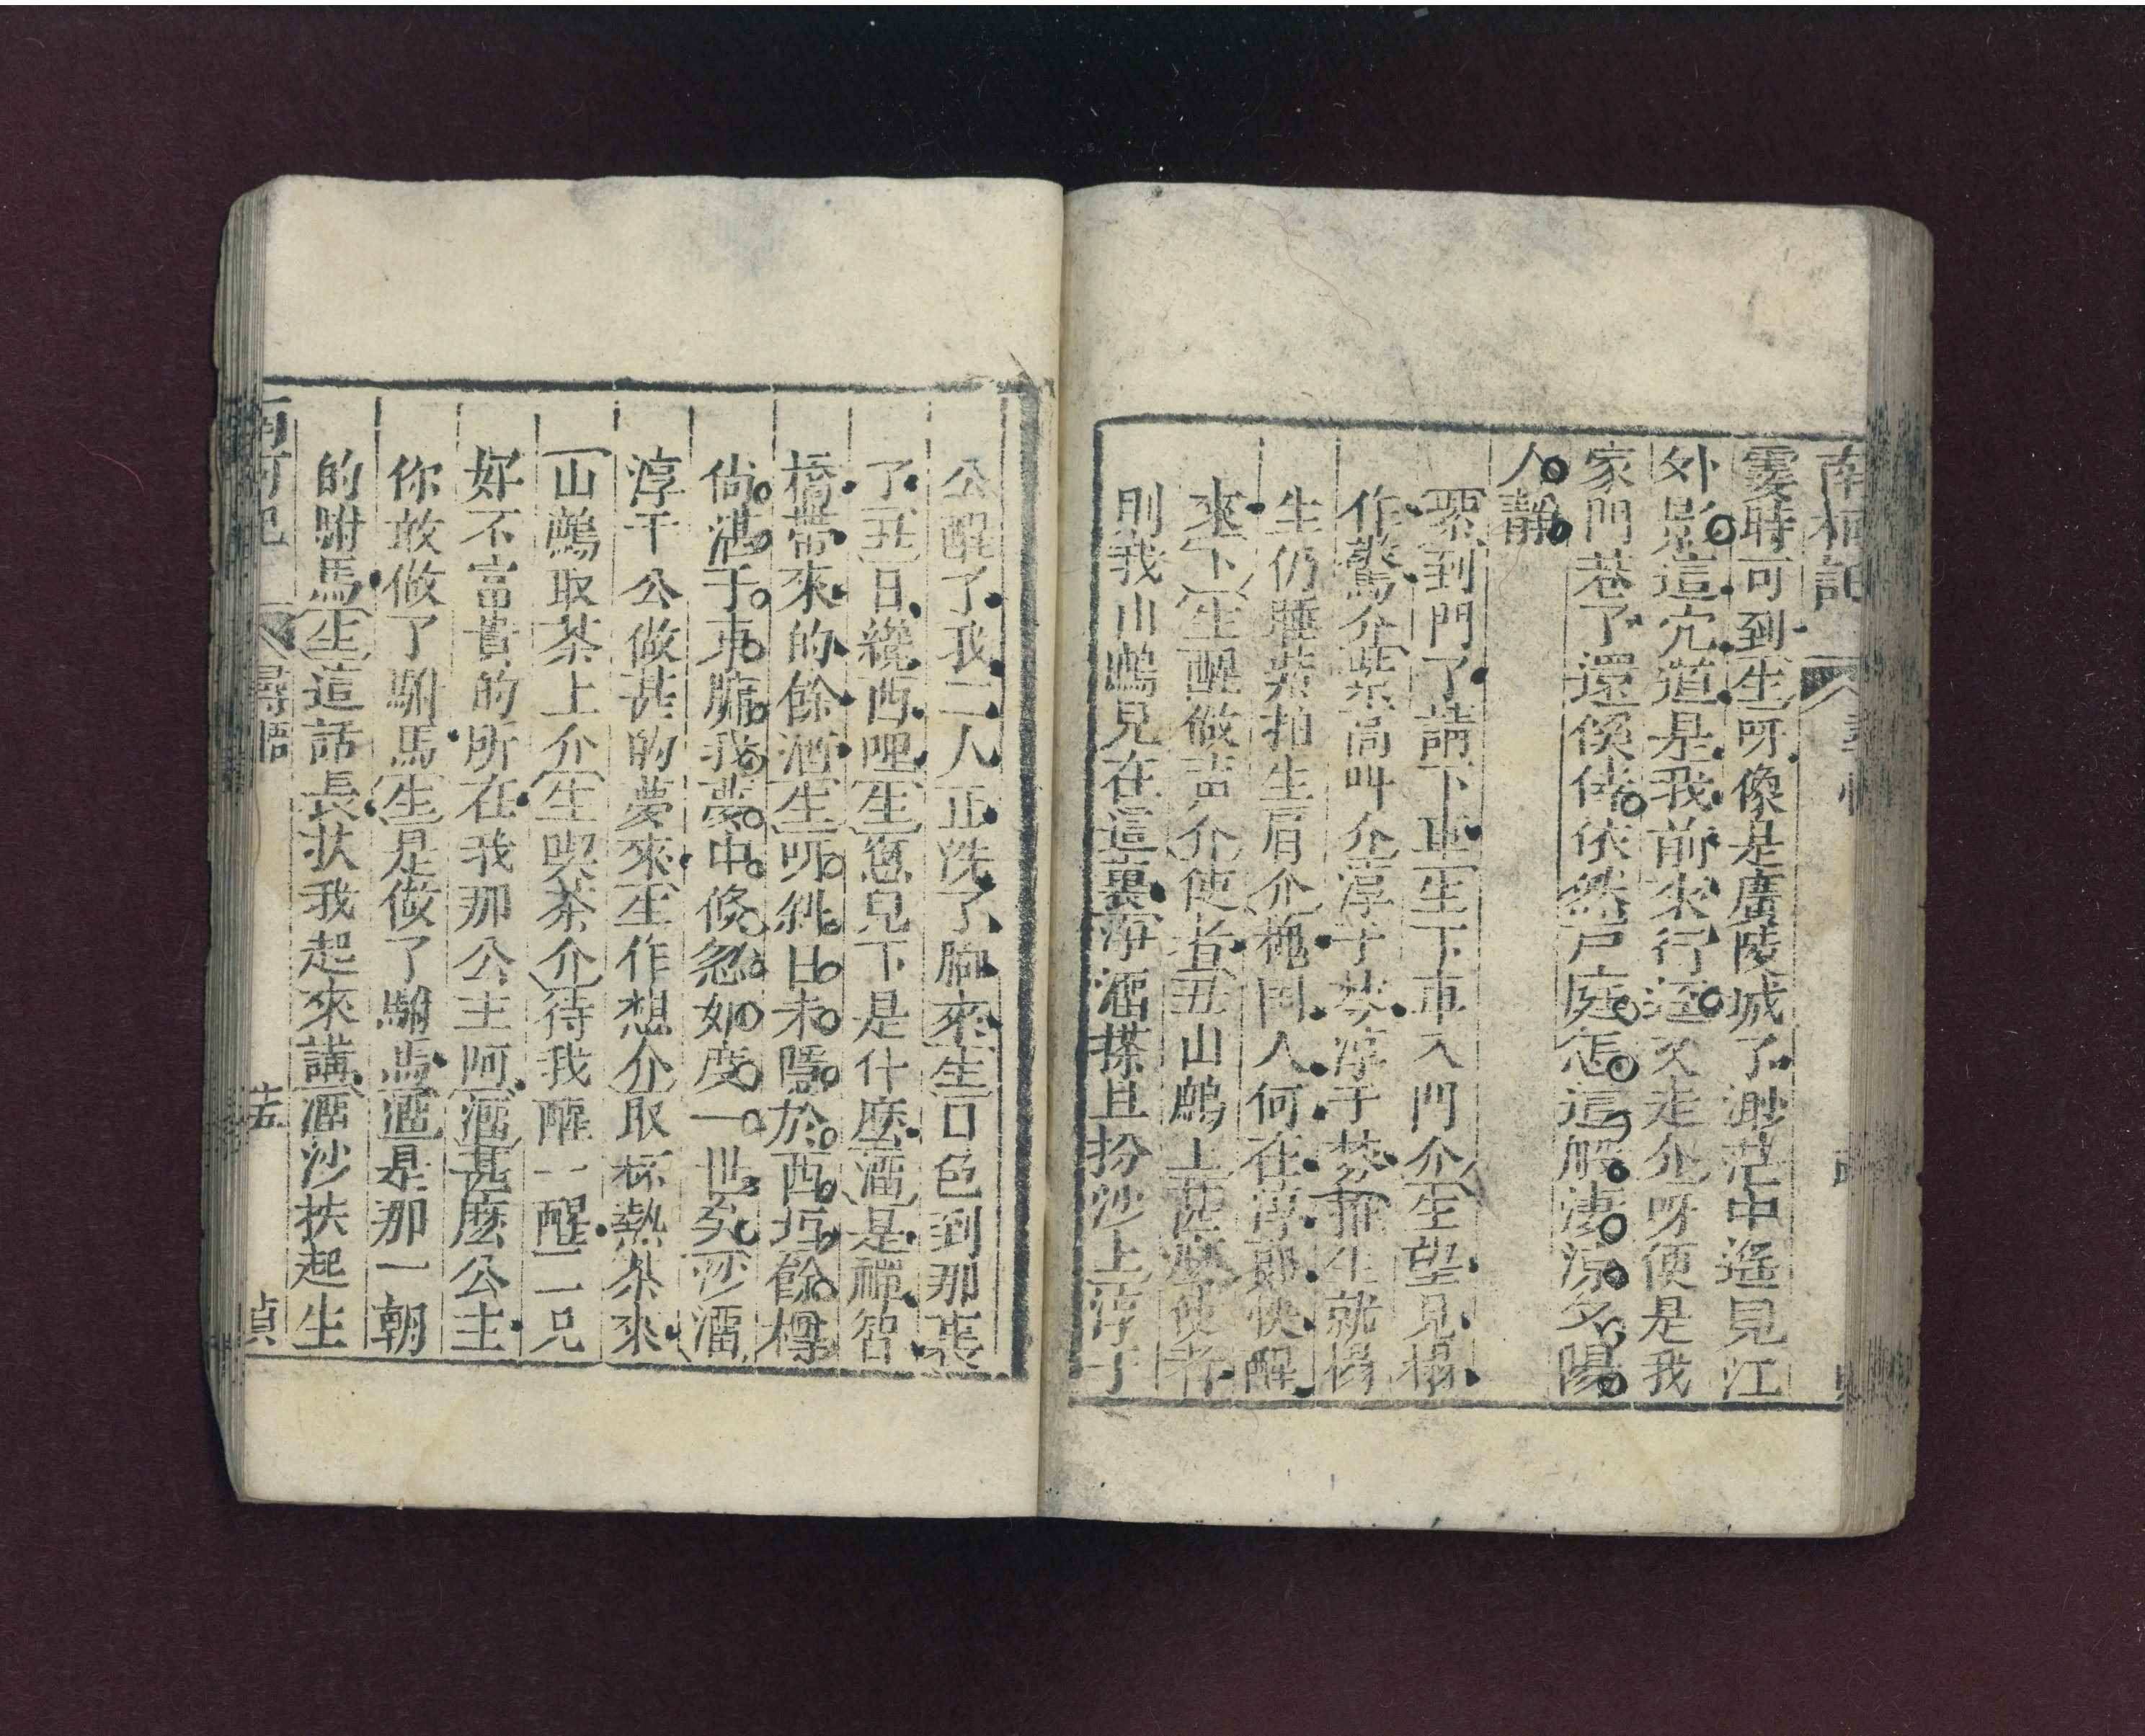 南柯記
霎時可到生呀像是廣陵城了渺茫中遙見江
外影這穴道是我前來行逕又走介呀便是我
家門巷了還傒倖依然戶庭怎這般淒涼夕陽
人靜
眾到門了請下車生下車入門介生望見榻
作驚介紫高叫介淳于棼淳于棼推生就榻
生仍睡紫拍生肩介槐國人何在淳郎快醒
來下生醒做声介使者丑山鷓上使者
則我山鷓兒在這裏淨溜搽旦扮沙上淳于
公醒了我二人正洗了脚來生日色到那裏
了丑日纔西哩生窓兒下是什麽溜是禪智
橋帶來的餘酒生呀斜日未隱於西垣餘樽
尚湛于東牖我夢中倏忽如度一世矣沙溜
淳于公做甚的夢來生作想介取杯熱茶來
山鷓取茶上介生喫茶介待我醒一醒二兄
好不富貴的所在我那公主呵溜甚麽公主
你敢做了駙馬生是做了駙馬溜是那一朝
的駙馬生這話長扶我起來講溜沙扶起生
尋悟
貞